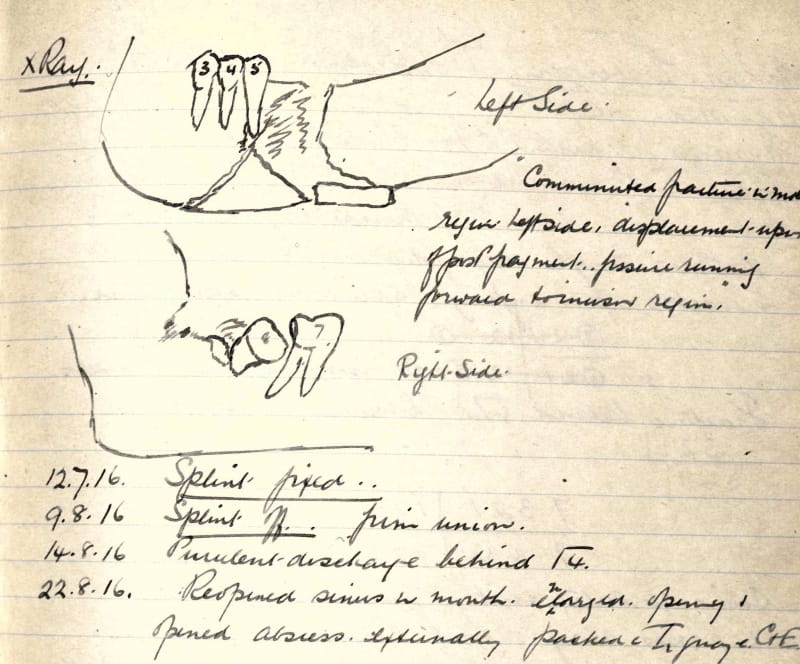 X Ray.
3 4 5
Left Side.
"Comminuted fracture in mol
region left side, displacement upw
of post fragment.. fissure running
forward to incisor region."
6 7
Right Side.
12.7.16. Splint fixed ..
9.8.16 Splint off.. firm union.
14.8.16 Purulent discharge behind 4.
22.8.16. Reopened sinus in mouth. Enlarged opening &
opened abscess externally packed c C&E.